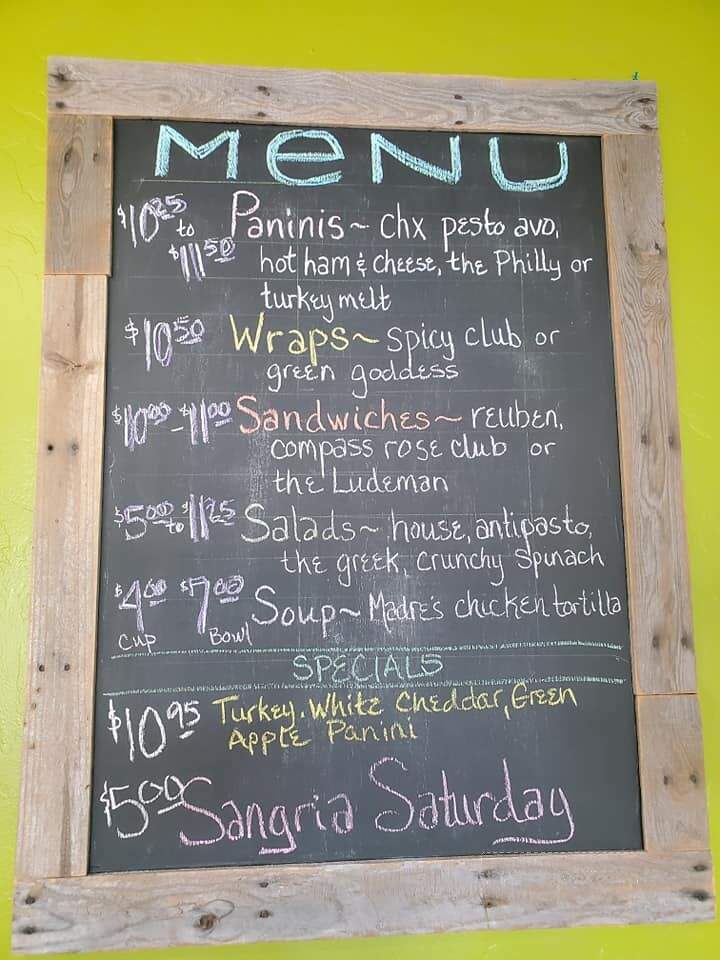 MENU
$10.25 to $11.50 Paninis ~ chx pesto avo,
hot ham & cheese, the Philly or
turkey melt
$10.50 Wraps ~ spicy club or
green goddess
$10.00 - $11.00 Sandwiches ~ reuben,
compass rose club or
the Ludeman
$5.00 to $11.25 Salads ~ house, antipasto,
the greek, crunchy spinach
$4.00 Cup $7.00 Bowl Soup ~ Madre's chicken tortilla
SPECIALS
$10.95 Turkey, White Cheddar, Green
Apple Panini
$5.00 Sangria Saturday